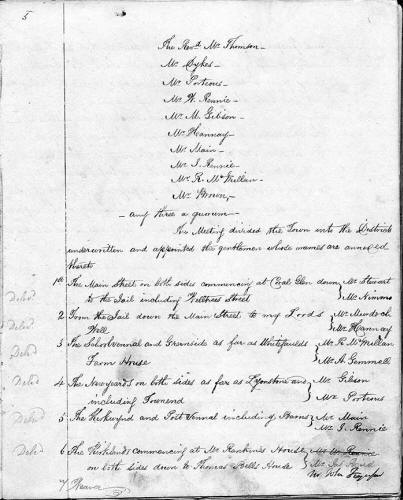 5
The Revd. Mr Thomson
Mr Sykes
Mr Porteous
Mr W. Rennie
Mr M. Gibson
Mr Hannay
Mr Main
Mr J. Rennie
Mr R. McMillan
Mr Brown,
any three a quorum
The Meeting divided the Town into the Districts
underwritten and appointed the gentlemen whose names are annexed
thereto
1st The Main Street on both sides commencing at Coal Glen down Mr Stewart
to the Jail including Street Mr Nimmo
Delvd.
2 From the Jail down the Main Street to my Lord's Mr Murdoch
Delvd.
Well Mr Hannay
3 The School Vennal and Greenside as far as Whitefaulds Mr R. McMillan
Delvd.
Farm House Mr A. Gemmell
4 The Newyards on both sides as far as and Mr Gibson
Delvd
including Townend Mr Porteous
5 The Kirkwynd and Post Vennal including Barns Mr Main
Delvd
Mr J. Rennie
6 The Kirklands commencing at Mr Rankine's House Mr W. Rennie
Delvd.
on both sides down to Thomas Bell's House Mr
Mr Jno
7 Weaver